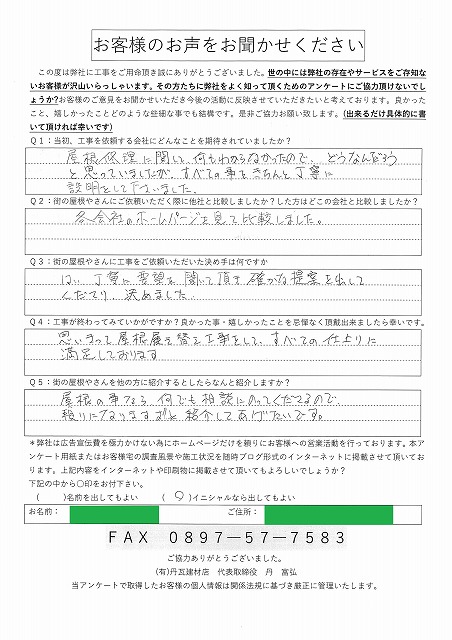 お客様のお声をお聞かせください
この度は弊社に工事をご用命頂き誠にありがとうございました。世の中には弊社の存在やサービスをご存知な
いお客様が沢山いらっしゃいます。その方たちに弊社をよく知って頂くためのアンケートにご協力頂けないでし
ょうか?お客様のご意見をお聞かせいただき今後の活動に反映させていただきたいと考えております。良かった
こと、嬉しかったことどのような些細な事でも結構です。是非ご協力お願い致します。(出来るだけ具体的に書
いて頂ければ幸いです)
Q1:当初、工事を依頼する会社にどんなことを期待されていましたか?
屋根修理に関し、何もわからなかったので、どうなんだろう
と思っていましたが、すべての事をきちんと丁寧に
説明をして下さいました。
Q2:街の屋根やさんにご依頼いただく際に他社と比較しましたか?した方はどこの会社と比較しましたか?
各会社のホームページを見て比較しました。
Q3:街の屋根やさんに工事をご依頼いただいた決め手は何ですか
はい、丁寧に要望を聞いて頂き確かな提案を出して
くださり、決めました。
Q4:工事が終わってみていかがですか?良かった事・嬉しかったことを忌憚なく頂戴出来ましたら幸いです。
思いきって屋根展を替え工事をして、すべての仕上りに
満足しております
Q5:街の屋根やさんを他の方に紹介するとしたらなんと紹介しますか?
屋根の事なら、何でも相談にのってくださるので、
頼りになりますよと紹介してあげたいです。
*弊社は広告宣伝費を極力かけない為にホームページだけを頼りにお客様への営業活動を行っております。本ア
ンケート用紙またはお客様宅の調査風景や施工状況を随時ブログ形式のインターネットに掲載させて頂いてお
ります。上記内容をインターネットや印刷物に掲載させて頂いてもよろしいでしょうか?
下記の中から〇印をお付下さい。
( )名前を出してもよい (〇)イニシャルなら出してもよい
お名前: ご住所:
FAX 0897-57-7583
ご協力ありがとうございました。
(有)丹瓦建材店 代表取締役 丹 富弘
当アンケートで取得したお客様の個人情報は関係法規に基づき厳正に管理いたします。